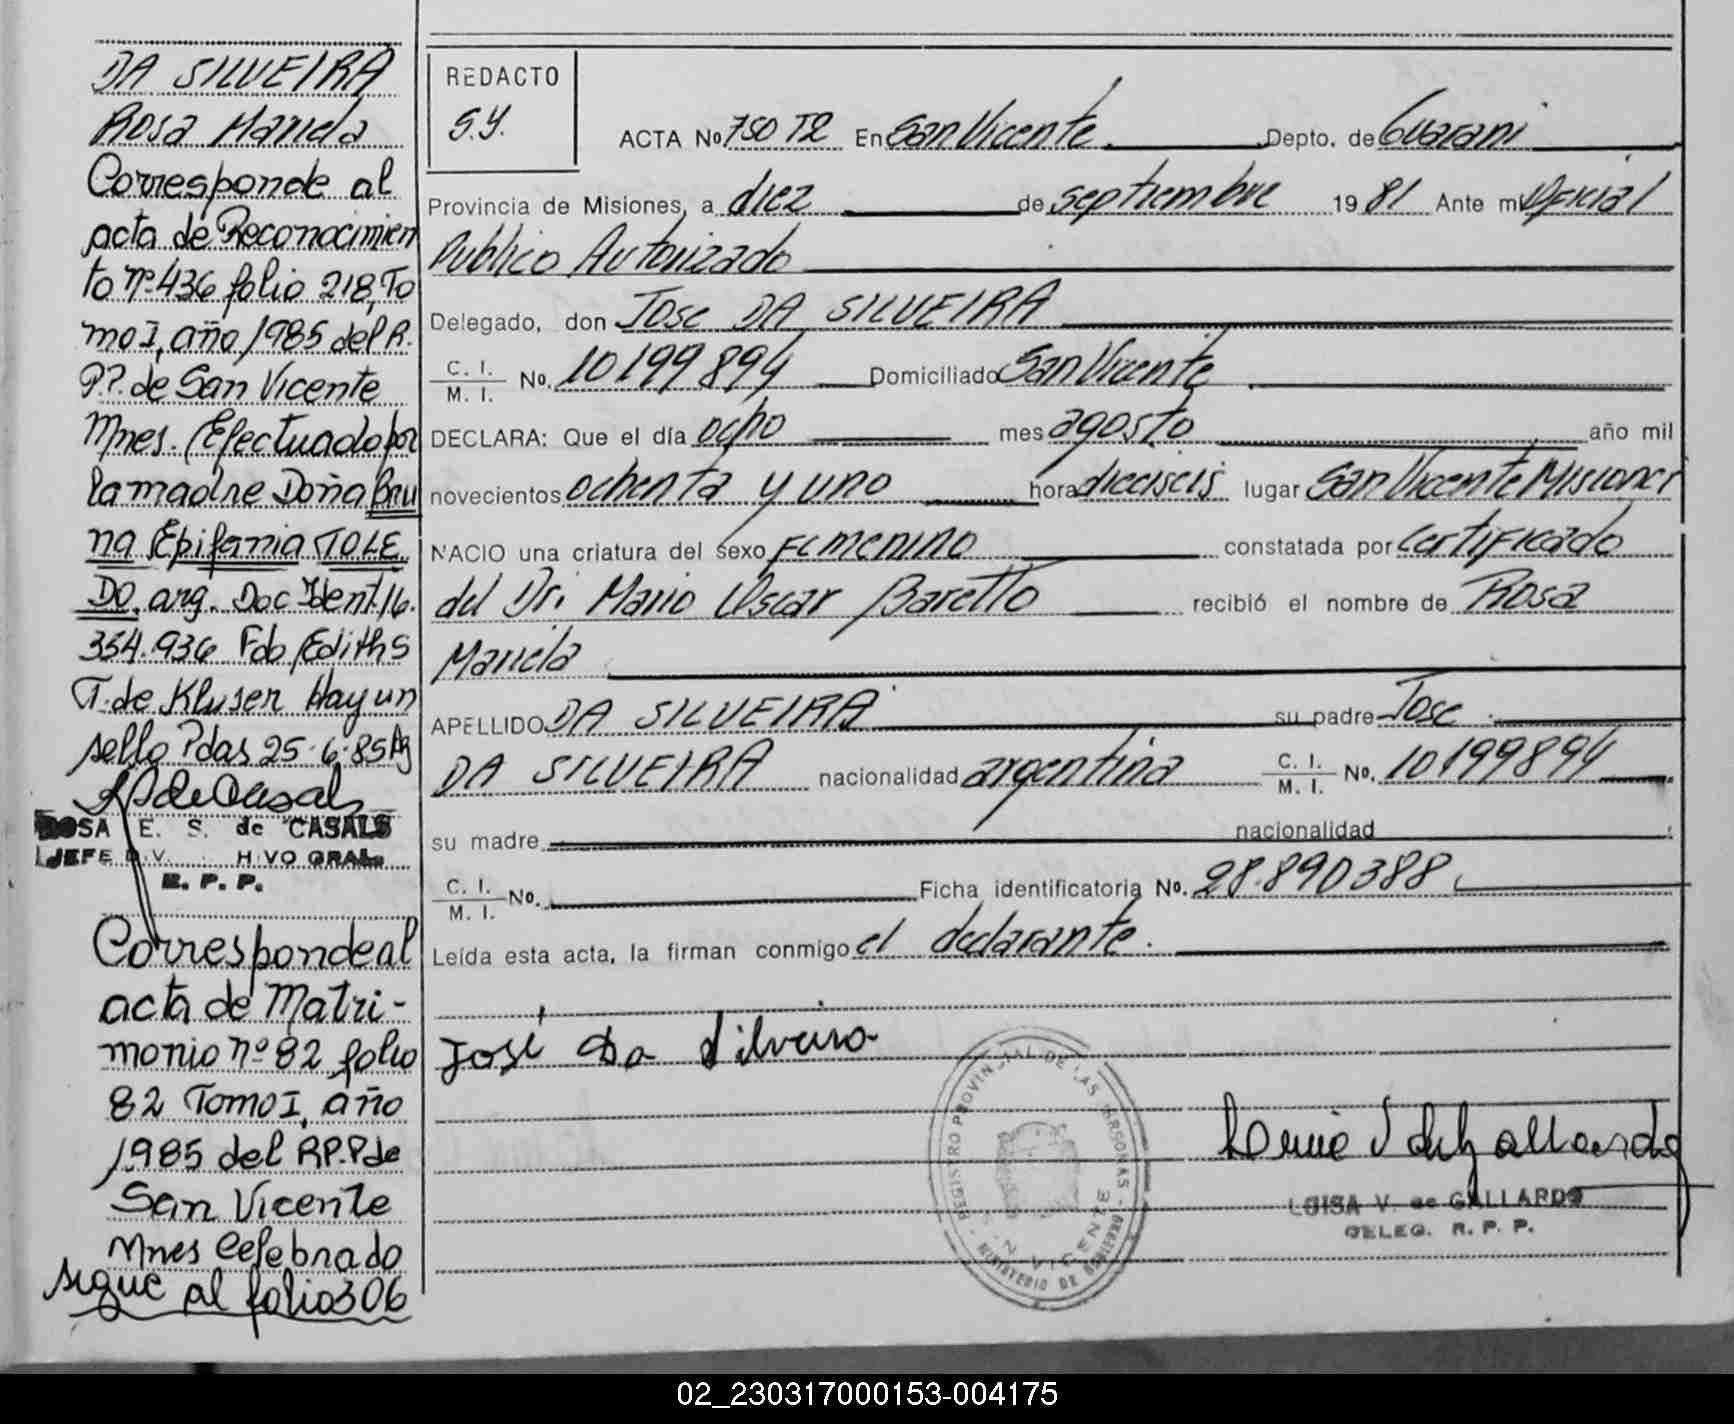 DA SILVEIRA
Rosa Mariela
Corresponde al
acta de Reconocimien
to nº 436 folio 218, To
mo I, año 1985 del R.
P.P. de San Vicente
Mnes. Efectuado por
la madre Doña Bru
na Epifania TOLE
DO, arg. Doc Ident. 16.
354.936 Fdo Edith S
T. de Kluser Hay un
sello Pdas 25-6-85
ROSA E. S. de CASALS
JEFE DIV. HIVO GRAL.
R. P. P.
Corresponde al
acta de Matri-
monio nº 82 folio
82 Tomo I, año
1985 del RP.P de
San Vicente
Mnes Celebrado
sigue al folio 306
REDACTO
S.Y.
ACTA Nº 750 T2 En San Vicente Depto. de Guarani
Provincia de Misiones, a diez de septiembre 1981 Ante mi Oficial
Publico Autorizado
Delegado, don Jose DA SILVEIRA
C. I.
M. I. No. 10199894 Domiciliado San Vicente
DECLARA: Que el día ocho mes agosto año mil
novecientos ochenta y uno hora dieciseis lugar San Vicente Misiones
NACIO una criatura del sexo Femenino constatada por Certificado
del Dr. Mario Oscar Baretto recibió el nombre de Rosa
Mariela
APELLIDO DA SILVEIRA su padre Jose
DA SILVEIRA nacionalidad argentina C. I.
M. I. No. 10199894
su madre nacionalidad
C. I.
M. I. No. Ficha identificatoria No. 28.890388
Leída esta acta, la firman conmigo el declarante.
José Da Silveira
REGISTRO PROVINCIAL DE LAS PERSONAS
MINISTERIO DE GOBIERNO
S. N VICENTE
LUISA V. de GALLARDO
DELEG. R. P. P.
02_230317000153-004175